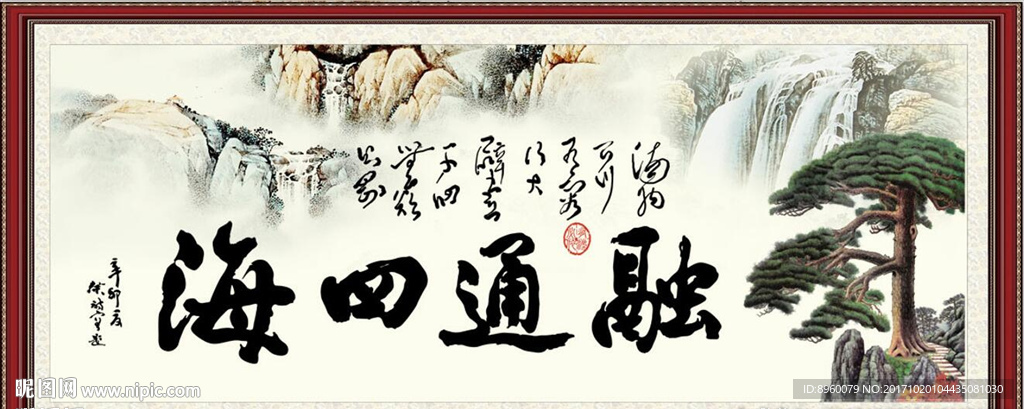 海納
百川
有容
乃大
壁立
千仞
無欲
則剛
融通四海
辛卯夏
昵图网 www.nipic.com
ID:8960079 NO:20171020104435081030